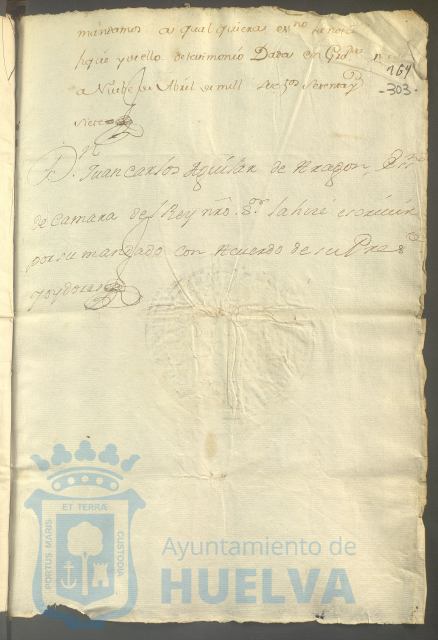 mandamos a qual quiera es.no la noti
fique y de ello de testimonio Dada en Gr.da
a Nuebe de Abril de mill setez.os setenta y
siete
164
-303-
D.n Juan Carlos Aguilar de Aragon, es.no
de Camara del Rey nro. s.or la hize escrivir
por su mandado con Acuerdo de su Pres.te
y oydores
ET TERRÆ
PORTUS MARIS
CUSTODIA
Ayuntamiento de
HUELVA